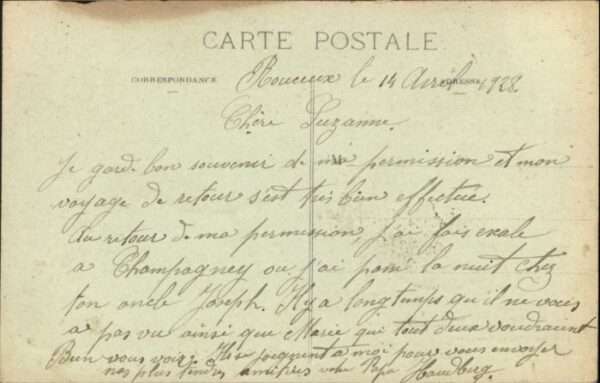 CARTE POSTALE
CORRESPONDANCE ADRESSE
Rouceux le 14 Avril 1928.
Chère Suzanne.
Je garde bon souvenir de ma permission et mon
voyage de retour s'est très bien effectué.
Au retour de ma permission, j'ai fais escale
a Champagney ou j'ai passé la nuit chez
ton oncle Joseph. Il y a longtemps qu'il ne vous
a pas vu ainsi que Marie qui tout deux voudraient
Bien vous voir. se joignent a moi pour vous envoyer
nos plus tendres amitiés votre Papa